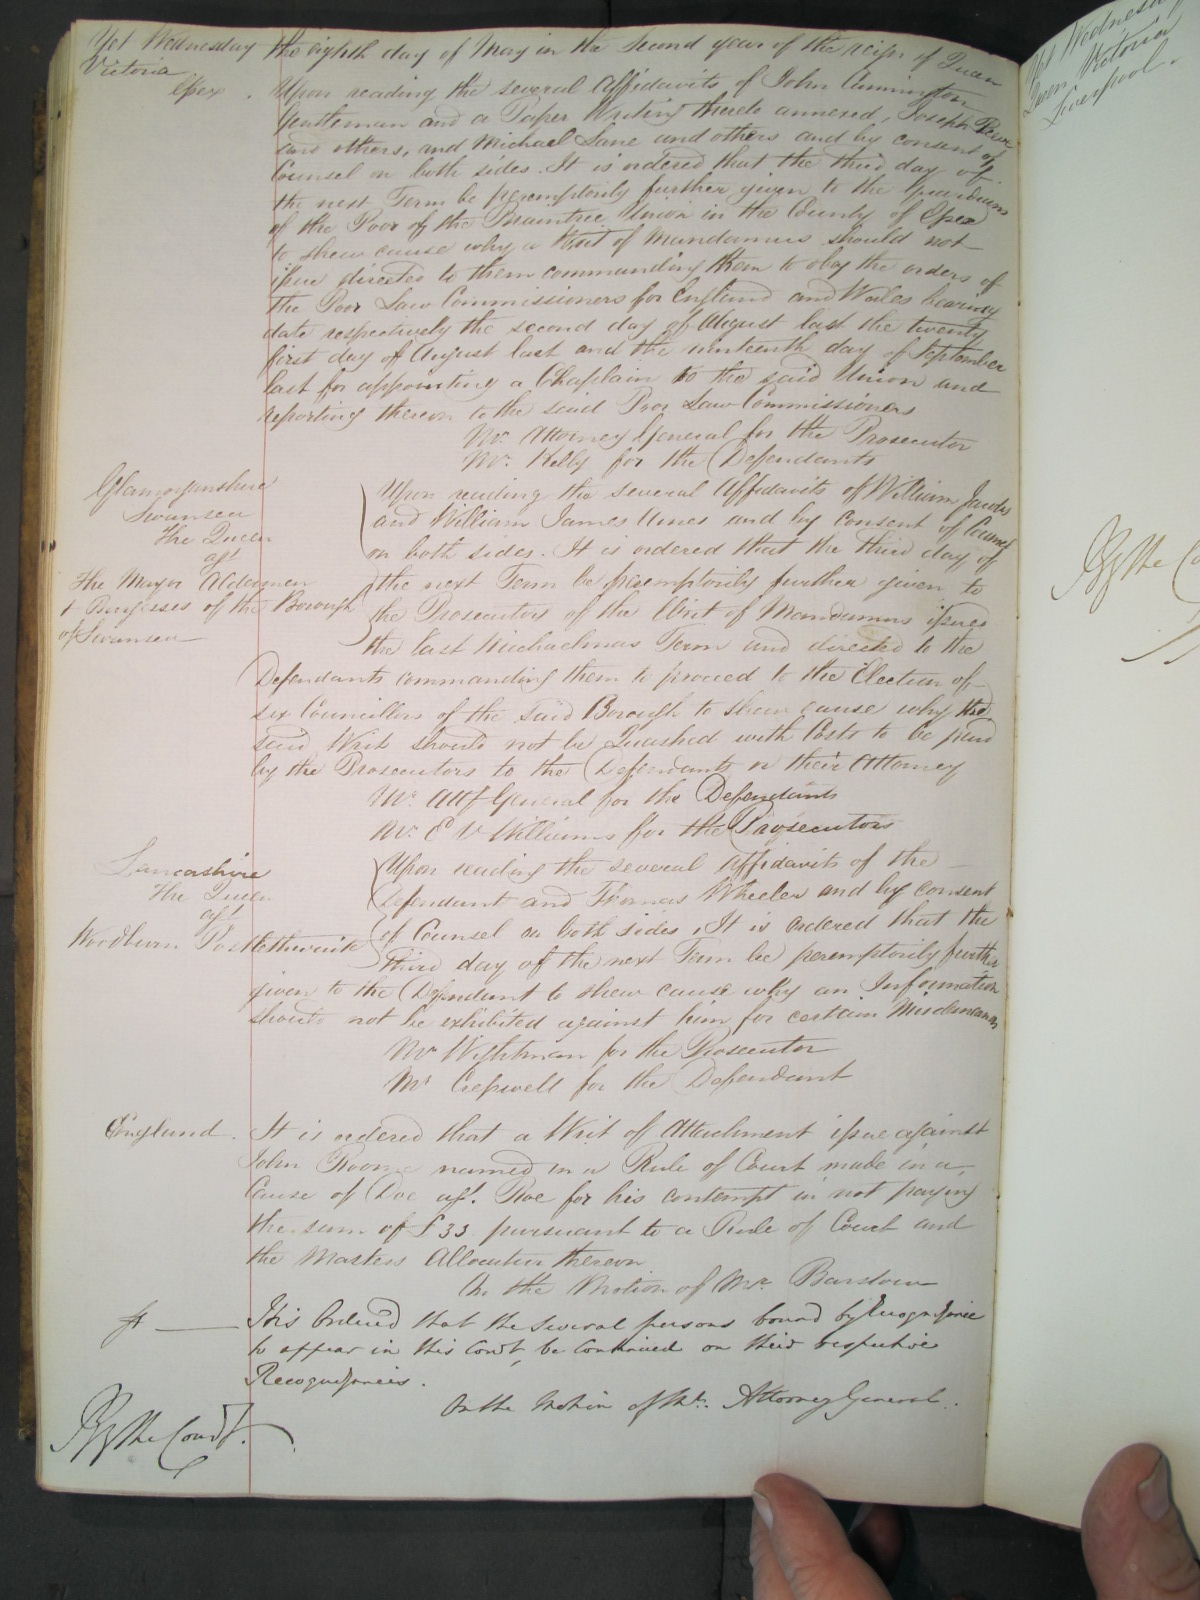 Yet Wednesday the eighth day of May in the Second year of the reign of Queen
Victoria
Essex . Upon reading the several Affidavits of John Cunnington
Gentleman and a Paper Writing thereto annexed, Joseph
and others, and Michael Lane and others and by consent of
Counsel on both sides. It is ordered that the third day of
the next Term be peremptorily further given to the Guardians
of the Poor of the Braintree Union in the County of Essex
to shew cause why a Writ of Mandamus should not
issue directed to them commanding them to obey the orders of
the Poor Law Commissioners for England and Wales bearing
date respectively the second day of August last the twenty
first day of August last and the nineteenth day of September
last for appointing a Chaplain to the said Union and
reporting thereon to the said Poor Law Commissioners
Mr. Attorney General for the Prosecutor
Mr. Kelly for the Defendants
Glamorganshire
Swansea
The Queen
agt
The Mayor Aldermen
& Burgesses of the Borough
of Swansea
Upon reading the several Affidavits of William Jacobs
and William James and by Consent of Counsel
on both sides. It is ordered that the third day of
the next Term be peremptorily further given to
the Prosecutors of the Writ of Mandamus issued
the last Michaelmas Term and directed to the
Defendants commanding them to proceed to the Election of
six Councillors of the said Borough to shew cause why the
said Writ should not be Quashed with Costs to be paid
by the Prosecutors to the Defendants or their Attorney
Mr. Att General for the Defendants
Mr. E V Williams for the Prosecutors
Lancashire
The Queen
agt
Woodburn Postlethwaite
Upon reading the several Affidavits of the
Defendant and Thomas Wheeler and by consent
of Counsel on both sides, It is ordered that the
third day of the next Term be peremptorily further
given to the Defendant to shew cause why an Information
should not be exhibited against him for certain Misdemeanors
Mr Wightman for the Prosecutor
Mr Cresswell for the Defendant
England. It is ordered that a Writ of Attachment issue against
John Roome named in a Rule of Court made in a
Cause of Doe agt. Roe for his contempt in not paying
the sum of £33 pursuant to a Rule of Court and
the Masters Allocatur thereon
On the Motion of Mr. Barstow
It is Ordered that the several persons bound by Recognizance
to appear in this Court, be continued on their respective
Recognizances.
On the Motion of Mr. Attorney General.
By the Court.
Yet Wednesday
Queen Victoria
Liverpool.
By the Co